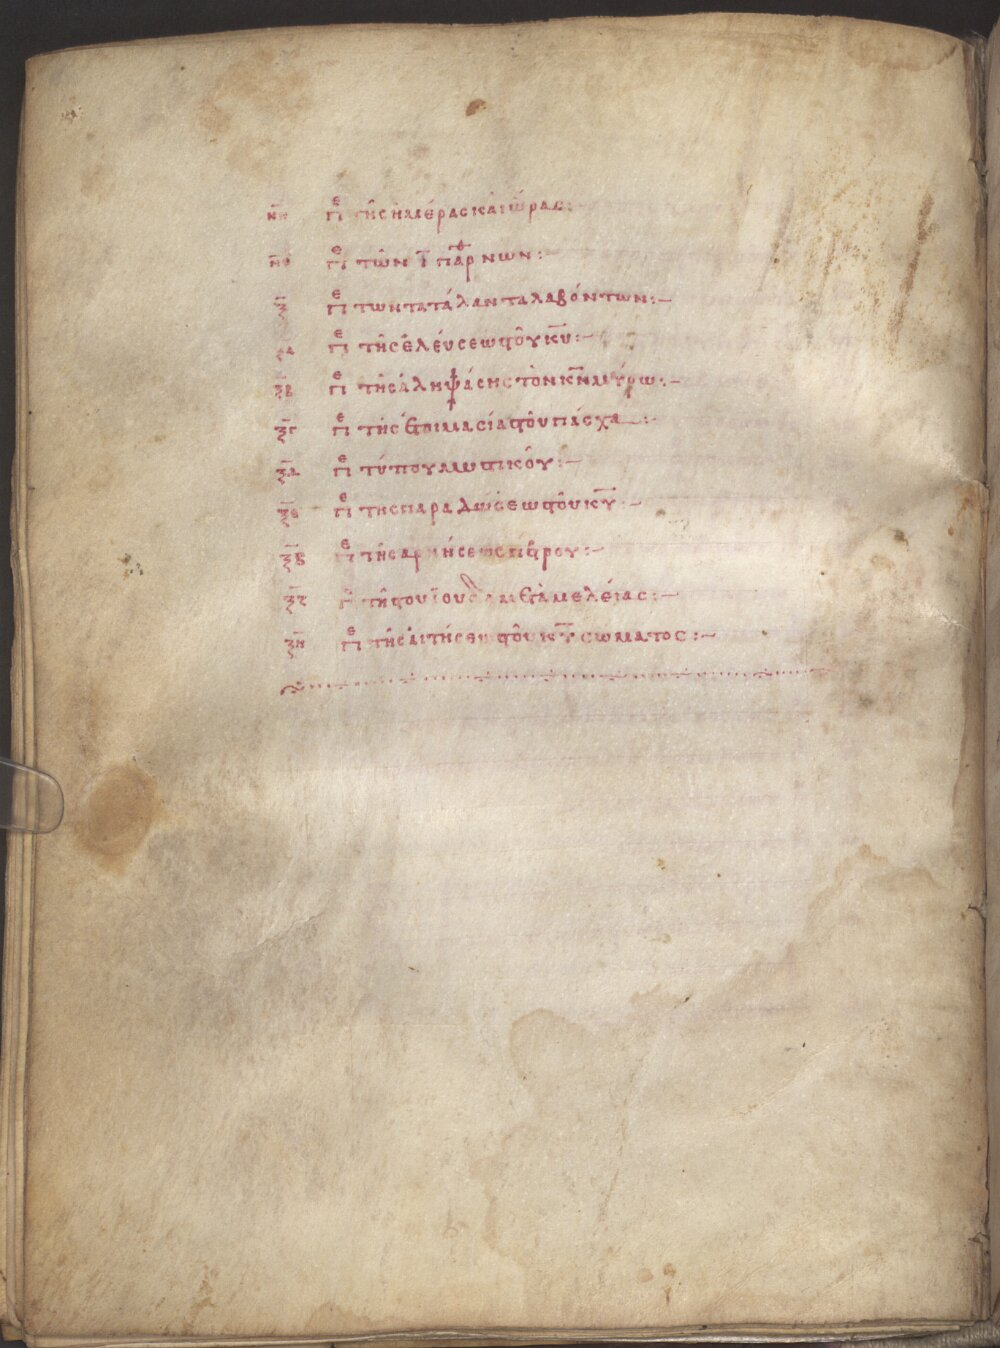 νη πε τῆς ἡμέρας καὶ ὥρας:
νθ πε τῶν ῑ παρ νων:—
ξ πε τῶν τα τάλαντα λαβόντων:—
ξα πε τῆς ἐλεύσεως τοῦ κῡ:—
ξβ πε τῆς ἀληψάσης τὸν κν̄ μύρω:—
ξγ πε τῆς ἑτοιμασίας τοῦ πάσχα:—
ξδ πε τύπου μυστικοῦ:—
ξε πε τῆς παραδώσεως τοῦ κῡ:—
ξϛ πε τῆς αρνήσεως πέτρου:—
ξζ πε τῆς τοῦ ϊούδα μεταμελείας:—
ξη πε τῆς αἰτήσεως τοῦ κῡ σώματος:—